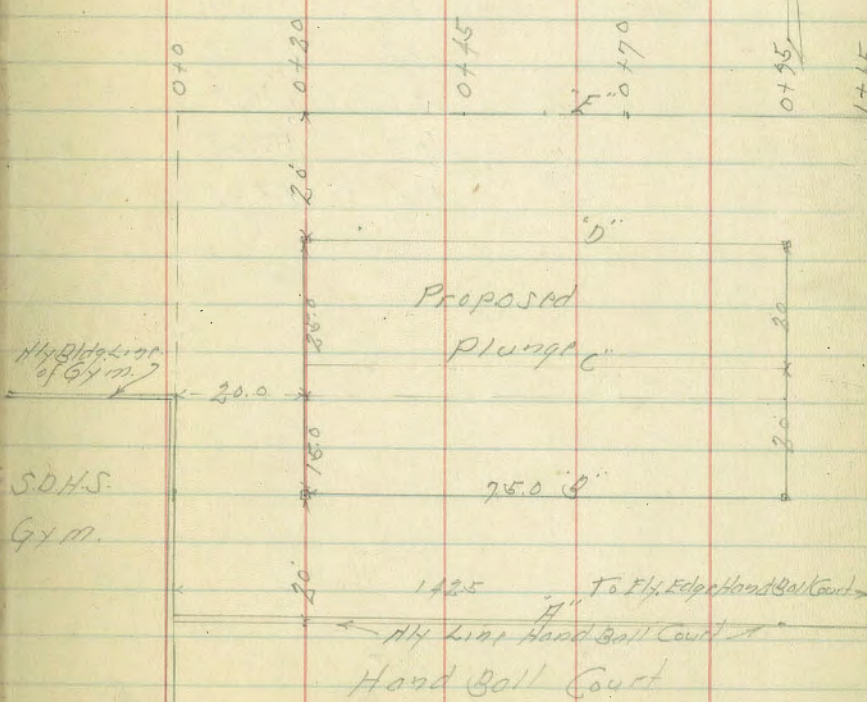 0+0
0+20
0+45
0+70
0+95
"E"
20'
"D"
Proposed
Plunge
"C"
25.0
20
Nly Bldg Line
of Gym.
20.0
15.0
20'
S.D.H.S.
Gym.
75.0 "B"
20'
142.5
To Ely. Edge Hand Ball Court
"A"
Nly Line Hand Ball Court
Hand Ball Court